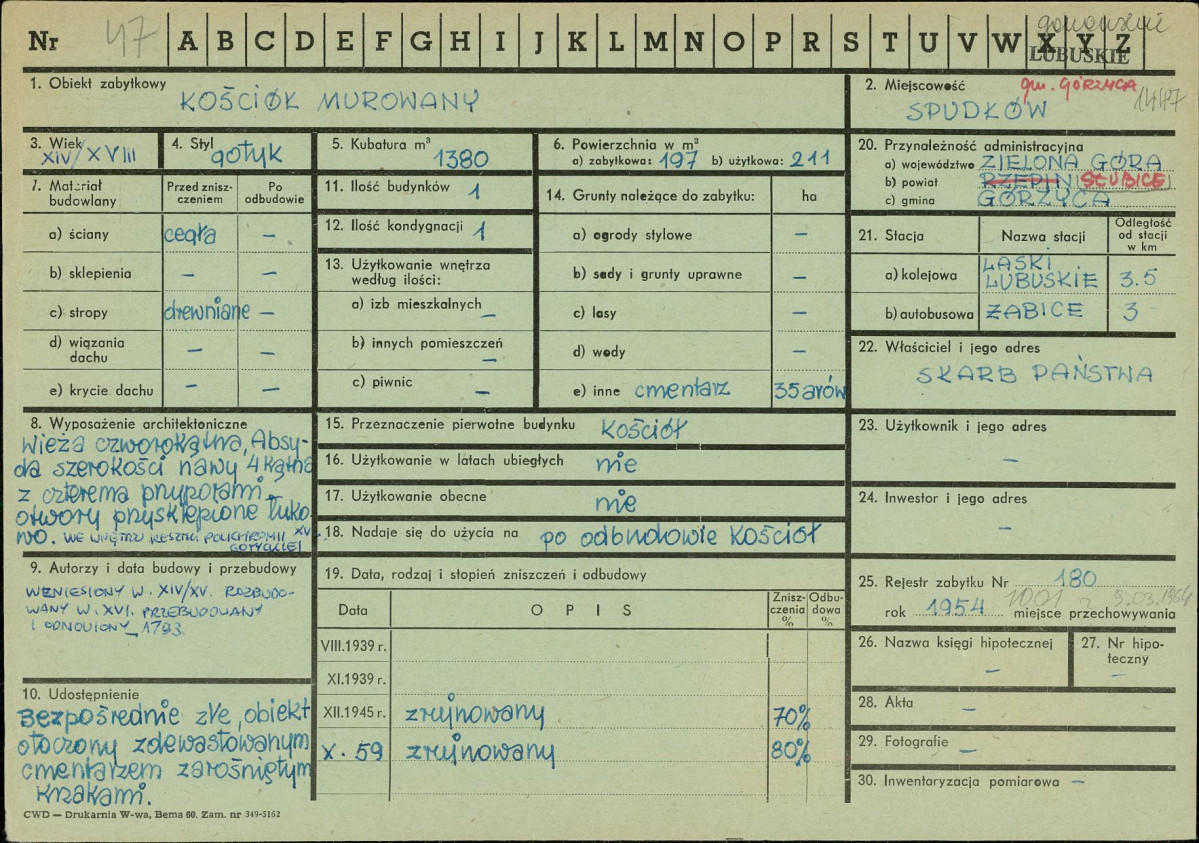 gorzowskie
Nr 47 A B C D E F G H I J K L M N O P R S T U V W X Y Z
LUBUSKIE
1. Obiekt zabytkowy
KOŚCIÓŁ MUROWANY
2. Miejscowość gm. GÓRZYCA
SPUDŁÓW 1447
3. Wiek
XIV/XVIII
4. Styl
gotyk
5. Kubatura m³
1380
6. Powierzchnia w m²
a) zabytkowa: 197 b) użytkowa: 211
7. Materiał budowlany
Przed zniszczeniem
Po odbudowie
a) ściany cegła –
b) sklepienia – –
c) stropy drewniane –
d) wiązania dachu – –
e) krycie dachu – –
8. Wyposażenie architektoniczne
Wieża czworokątna, Absy-
da szerokości nawy 4kątna
z czterema przyporami.
otwory przysklepione łuko-
wo. WE WNĘTRZU RESZTKI POLICHROMII XV
GOTYCKIEJ
9. Autorzy i data budowy i przebudowy
WZNIESIONY W. XIV/XV. ROZBUDO-
WANY W. XVI. PRZEBUDOWANY
I ODNOWIONY_1793
10. Udostępnienie
Bezpośrednie złe, obiekt
otoczony zdewastowanym
cmentarzem zarośniętym
krzakami.
11. Ilość budynków 1
12. Ilość kondygnacji 1
13. Użytkowanie wnętrza
według ilości:
a) izb mieszkalnych –
b) innych pomieszczeń –
c) piwnic –
14. Grunty należące do zabytku: ha
a) ogrody stylowe –
b) sady i grunty uprawne –
c) lasy –
d) wody –
e) inne cmentarz 35 arów
15. Przeznaczenie pierwotne budynku kościół
16. Użytkowanie w latach ubiegłych nie
17. Użytkowanie obecne nie
18. Nadaje się do użycia na po odbudowie kościół
19. Data, rodzaj i stopień zniszczeń i odbudowy
Data O P I S Zniszczenia % Odbudowa %
VIII.1939 r.
XI.1939 r.
XII.1945 r. zrujnowany 70%
X. 59 zrujnowany 80%
20. Przynależność administracyjna
a) województwo ZIELONA GÓRA
b) powiat RZEPIN SŁUBICE
c) gmina GÓRZYCA
21. Stacja Nazwa stacji Odległość od stacji w km
a) kolejowa LASKI LUBUSKIE 3.5
b) autobusowa ŻABICE 3
22. Właściciel i jego adres
SKARB PAŃSTWA
23. Użytkownik i jego adres
–
24. Inwestor i jego adres
–
25. Rejestr zabytku Nr 180
rok 1954 1001 z 9.03.1964 miejsce przechowywania
26. Nazwa księgi hipotecznej
–
27. Nr hipo-
teczny
–
28. Akta –
29. Fotografie –
30. Inwentaryzacja pomiarowa –
CWD — Drukarnia W-wa, Bema 60. Zam. nr 349-5162